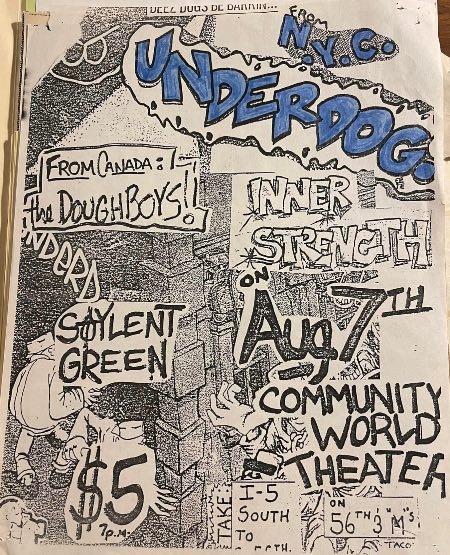 DEEZ DOGS BE BARKIN...
FROM
N.Y.C.
UNDERDOG.
FROM CANADA:
the DOUGHBOYS!!
INNER
STRENGTH
SOYLENT
GREEN
ON
Aug, 7TH
COMMUNITY
WORLD
THEATER
$5
7p.m.
TAKE
I-5
SOUTH
TO
ON
56TH 3 "M"'S
TACO